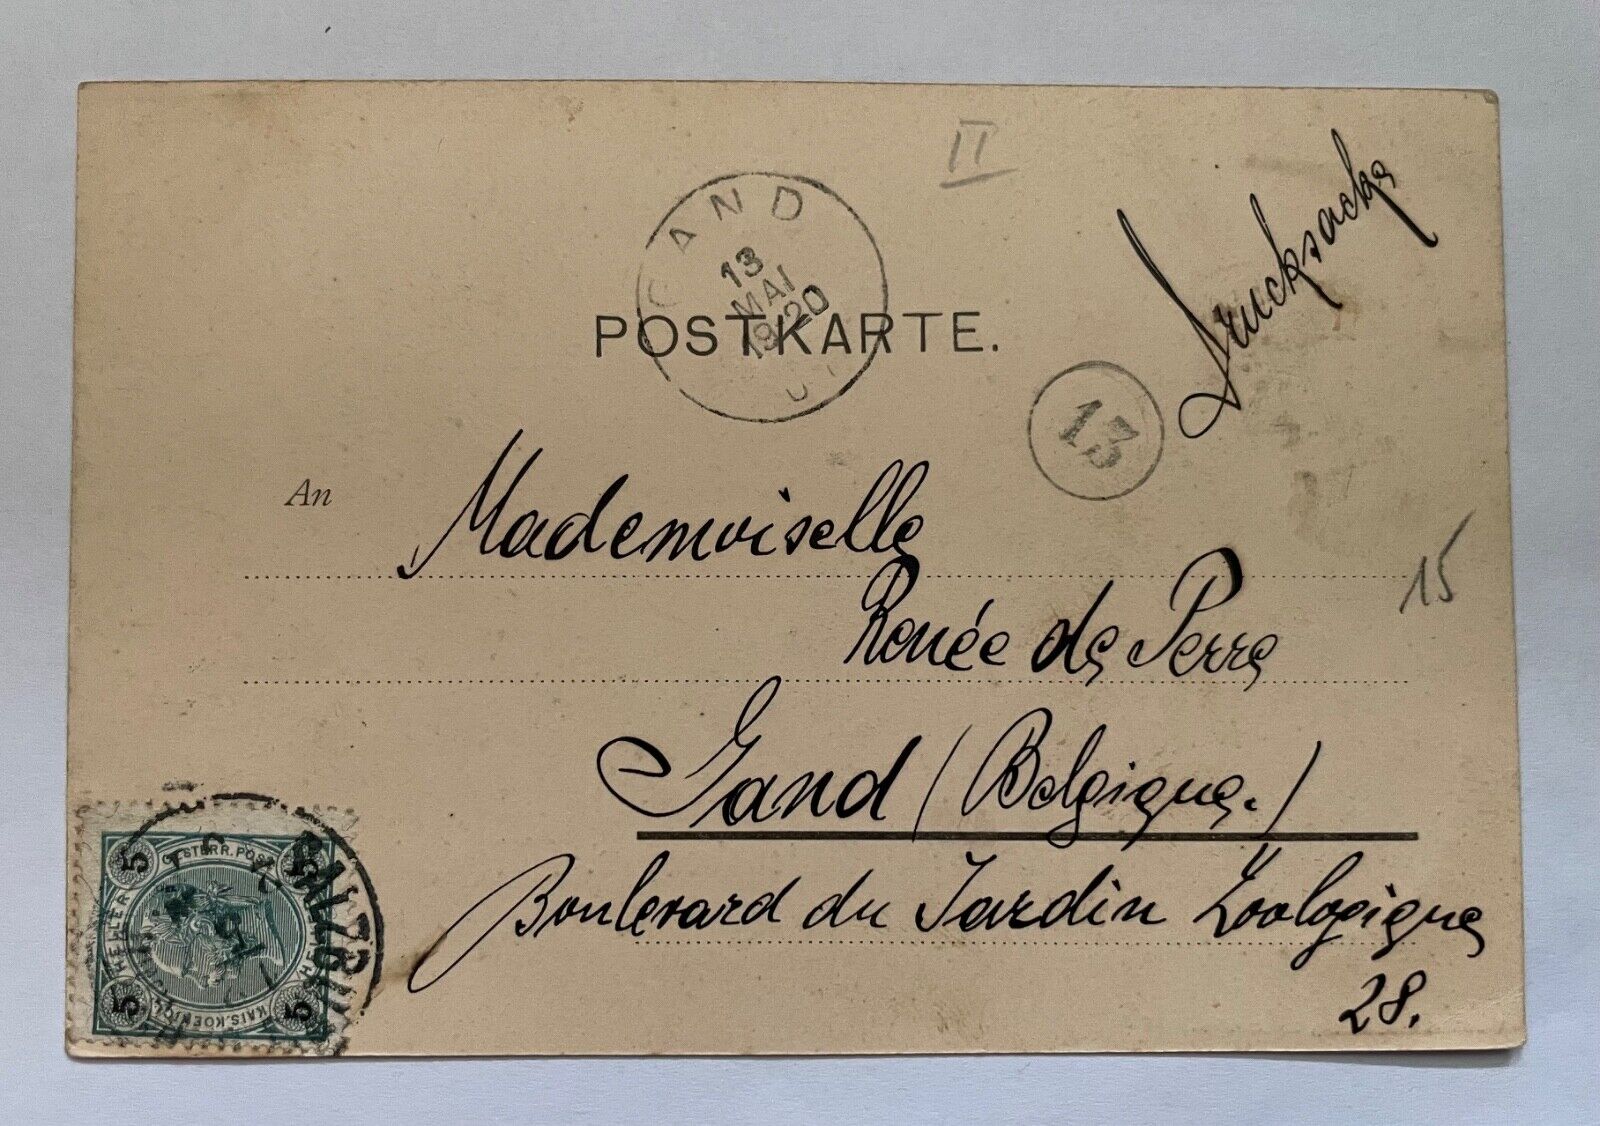 II
Drucksache
GAND
13
MAI
19-20
POSTKARTE.
13
An
Mademoiselle
15
Renée de Perre
Gand (Belgique.)
Boulevard du Jardin Zoologique
28.
5 OESTERR.POST 5
HELLER HELLER
5 KAIS.KOENIGL. 5
SALZBURG